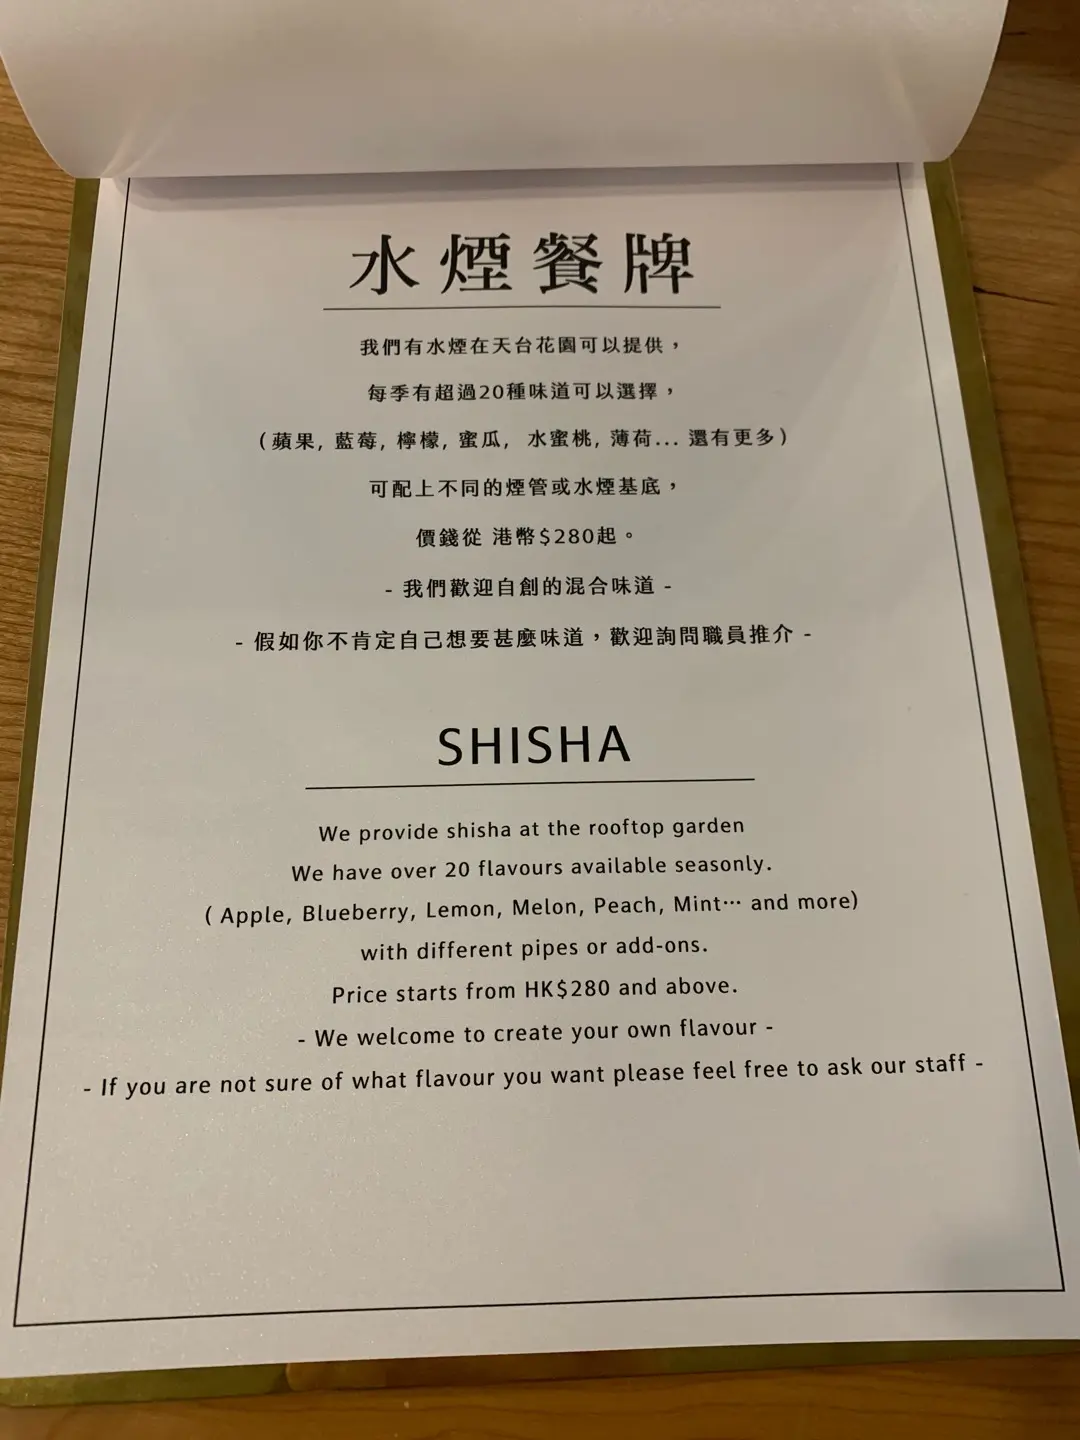 水煙餐牌
我們有水煙在天台花園可以提供，
每季有超過20種味道可以選擇，
(蘋果, 藍莓, 檸檬, 蜜瓜, 水蜜桃, 薄荷... 還有更多)
可配上不同的煙管或水煙基底，
價錢從 港幣$280起。
- 我們歡迎自創的混合味道 -
- 假如你不肯定自己想要甚麼味道，歡迎詢問職員推介 -
SHISHA
We provide shisha at the rooftop garden
We have over 20 flavours available seasonly.
( Apple, Blueberry, Lemon, Melon, Peach, Mint··· and more)
with different pipes or add-ons.
Price starts from HK$280 and above.
- We welcome to create your own flavour -
- If you are not sure of what flavour you want please feel free to ask our staff -